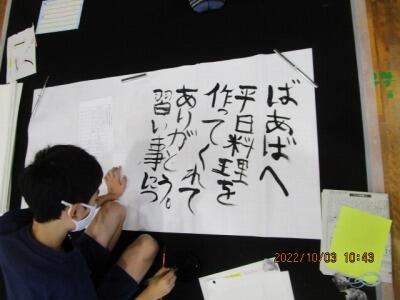 ばあばへ
平日料理を
作ってくれて
ありがとう。
習い事につ
2022/10/03 10:43